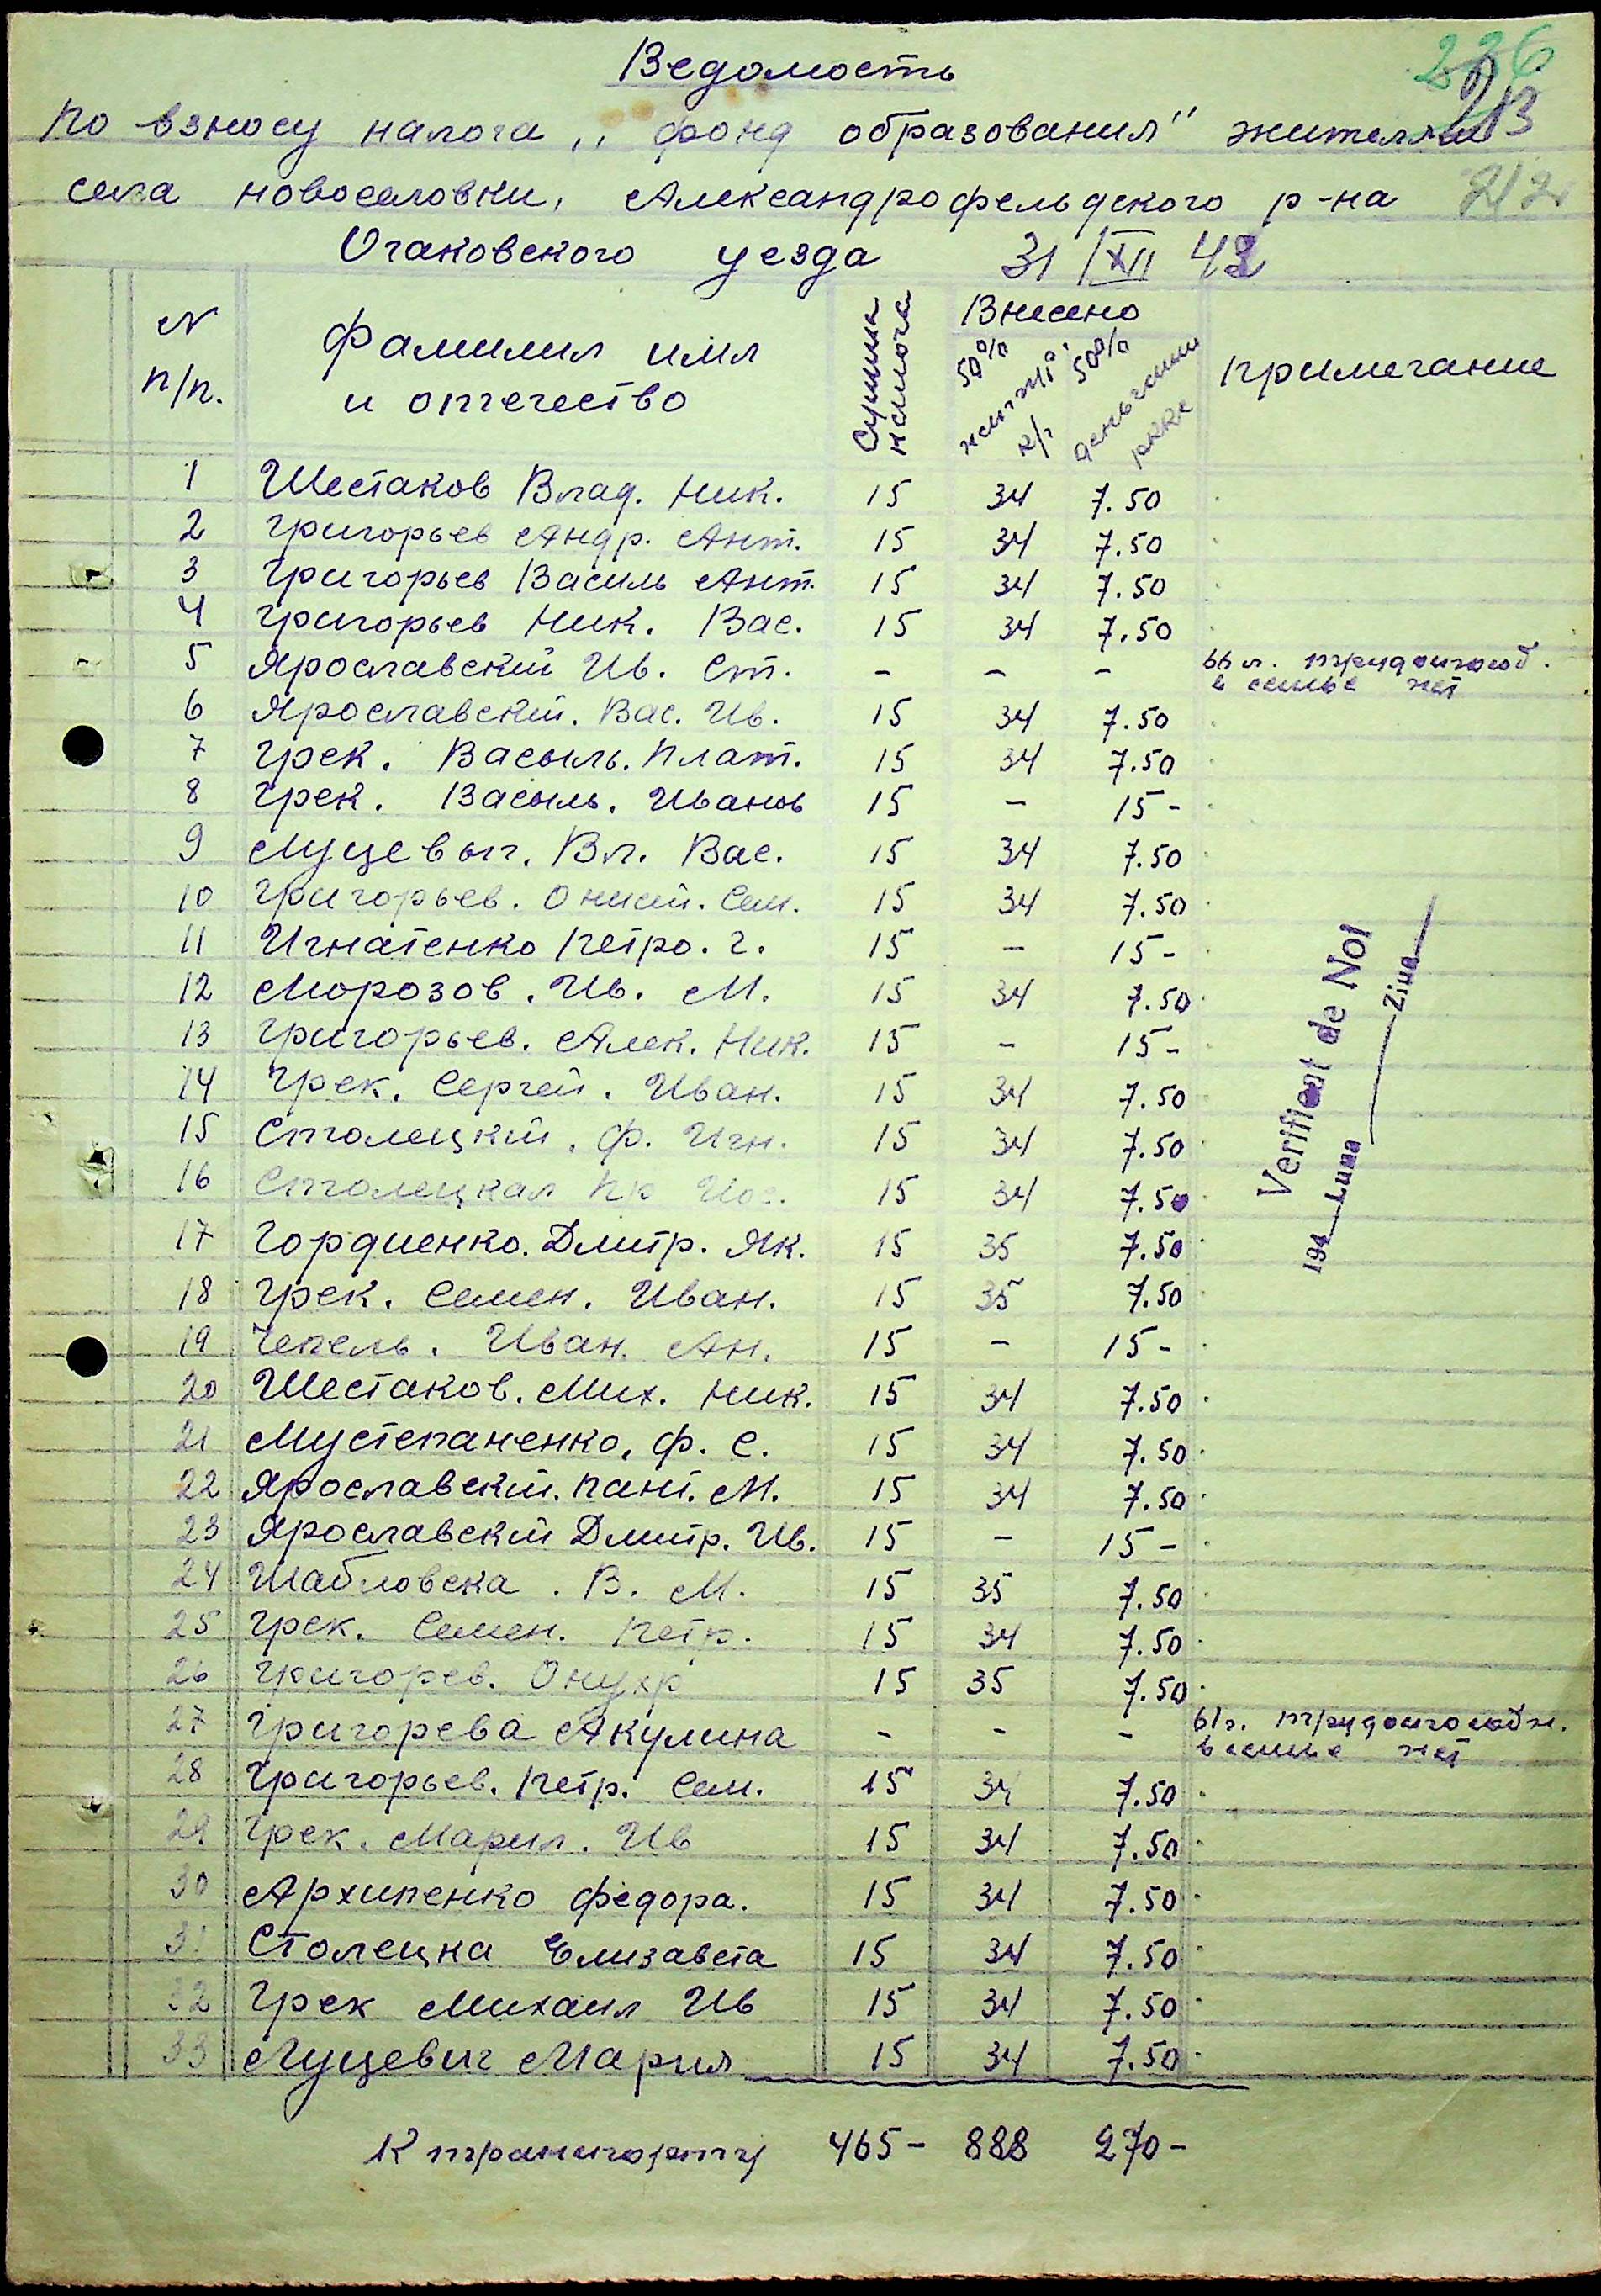 236
213
Ведомость
По взносу налога „фонд образования" жителями
села новоселовки, Александрофельдского р-на 212
Очаковского уезда 31/XII 42
N п/п. Фамилия имя и отчество Сумма налога Внесено примечание
50% к/г 50% деньгами
1 Шестаков Влад. Ник. 15 34 7.50
2 Григорьев Андр. Ант. 15 34 7.50
3 Григорьев Василь Ант. 15 34 7.50
4 Григорьев Ник. Вас. 15 34 7.50
5 Ярославский Ив. Ст. - - - 66 л. трудоспособ.
в семье нет
6 Ярославский. Вас. Ив. 15 34 7.50
7 Грек. Васыль. Плат. 15 34 7.50
8 Грек. Васыль. Иванов 15 - 15-
9 Луцевыч. Вл. Вас. 15 34 7.50
10 Григорьев. Сем. 15 34 7.50
11 Игнатенко Петро. Г. 15 - 15-
12 Морозов. Ив. М. 15 34 7.50
13 Григорьев. Алек. Ник. 15 - 15-
14 Грек. Сергей. Иван. 15 34 7.50
15 Столецкий. Ф. Игн. 15 34 7.50
16 Столецкая Пр 15 34 7.50
17 Гордиенко. Дмитр. Як. 15 35 7.50
18 Грек. Семен. Иван. 15 35 7.50
19 Чепель. Иван. Ан. 15 - 15-
20 Шестаков. Мих. Ник. 15 34 7.50
21 Мустепаненко, Ф. С. 15 34 7.50
22 Ярославский. Пант. М. 15 34 7.50
23 Ярославский Дмитр. Ив. 15 - 15-
24 Шабловска. В. М. 15 35 7.50
25 Грек. Семен. Петр. 15 34 7.50
26 Григорев. Онуфр 15 35 7.50
27 Григорева Акулина - - - 61 г. трудоспособн.
в семье нет
28 Григорьев. Петр. Сем. 15 34 7.50
29 Грек. Мария. Ив 15 34 7.50
30 Архипенко Федора. 15 34 7.50
31 Столецка Елизавета 15 34 7.50
32 Грек Михаил Ив 15 34 7.50
33 Луцевич Мария 15 34 7.50
К транспорту 465- 888 270-
Verificat de Noi
194 Luna Ziua